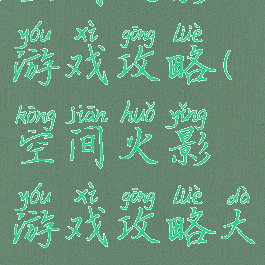 yóu xì gōng lüè
游戏攻略(
kōng jiān huǒ yǐng
空间火影
yóu xì gōng lüè dà
游戏攻略大